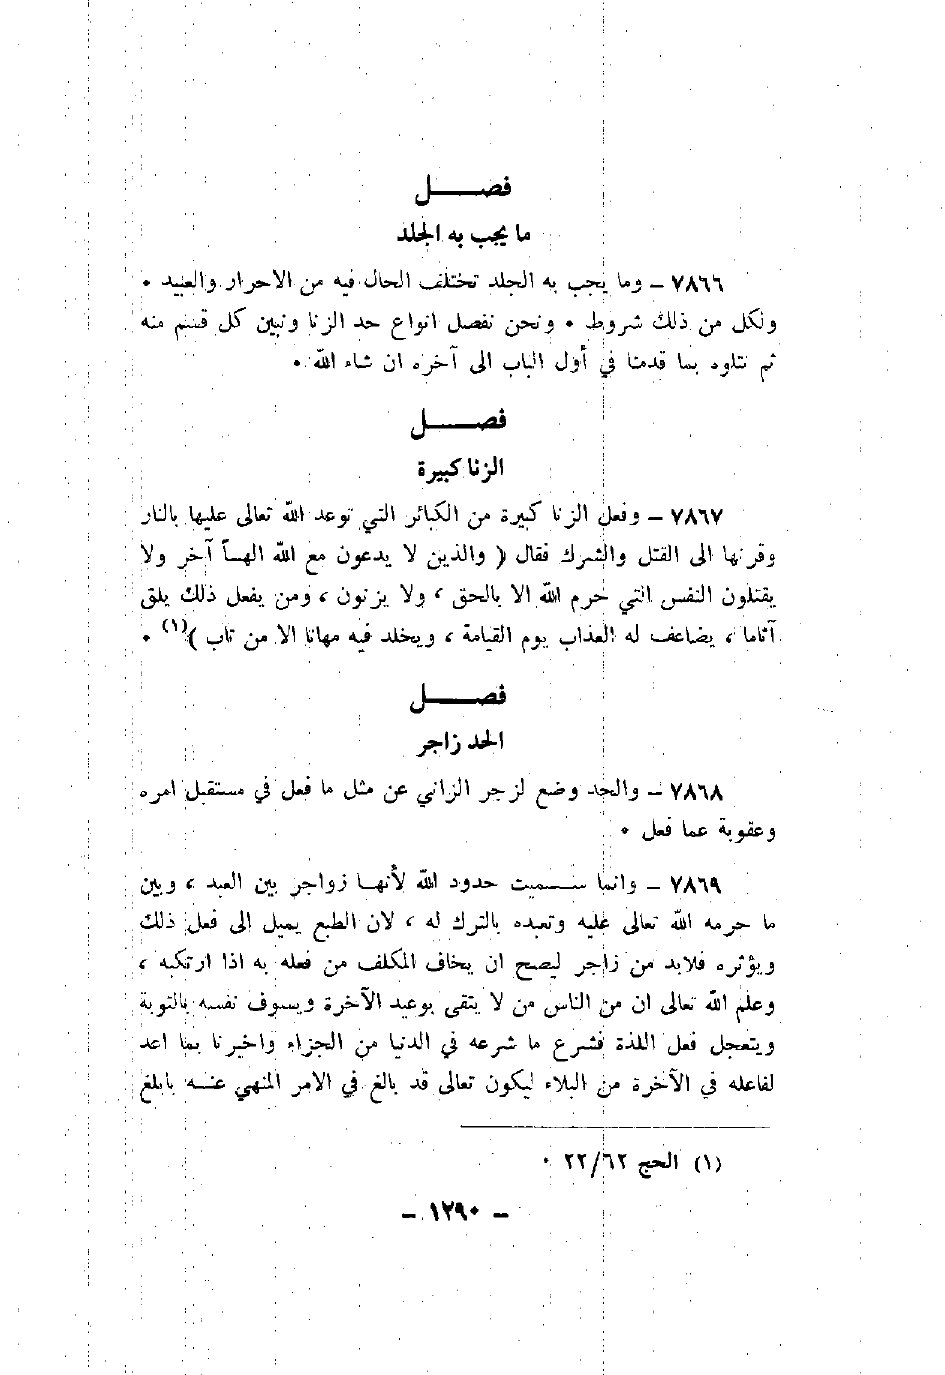 فصــــل
ما يجب به الجلد
٧٨٦٦ – وما يجب به الجلد تختلف الحال فيه من الاحرار والعبيد .
ولكل من ذلك شروط . ونحن نفصل انواع حد الزنا ونبين كل قسم منه
ثم نتلوه بما قدمنا في أول الباب الى آخره ان شاء الله .
فصــــل
الزنا كبيرة
٧٨٦٧ – وفعل الزنا كبيرة من الكبائر التي توعد الله تعالى عليها بالنار
وقرنها الى القتل والشرك فقال ( والذين لا يدعون مع الله الهـاً آخر ولا
يقتلون النفس التي حرم الله الا بالحق ، ولا يزنون ، ومن يفعل ذلك يلق
آثاما ، يضاعف له العذاب يوم القيامة ، ويخلد فيه مهانا الا من تاب )(١) .
فصــــل
الحد زاجر
٧٨٦٨ – والحد وضع لزجر الزاني عن مثل ما فعل في مستقبل امره
وعقوبة عما فعل .
٧٨٦٩ – وانما ســميت حدود الله لأنهـا زواجر بين العبد ، وبين
ما حرمه الله تعالى عليه وتعبده بالترك له ، لان الطبع يميل الى فعل ذلك
ويؤثره فلابد من زاجر ليصح ان يخاف المكلف من فعله به اذا ارتكبه ،
وعلم الله تعالى ان من الناس من لا يتقى بوعيد الآخرة ويسوف نفسه بالتوبة
ويتعجل فعل اللذة فشرع ما شرعه في الدنيا من الجزاء واخبرنا بما اعد
لفاعله في الآخرة من البلاء ليكون تعالى قد بالغ في الامر المنهي عنــه بابلغ
(١) الحج ٢٢/٦٢ .
– ١٢٩٠ –